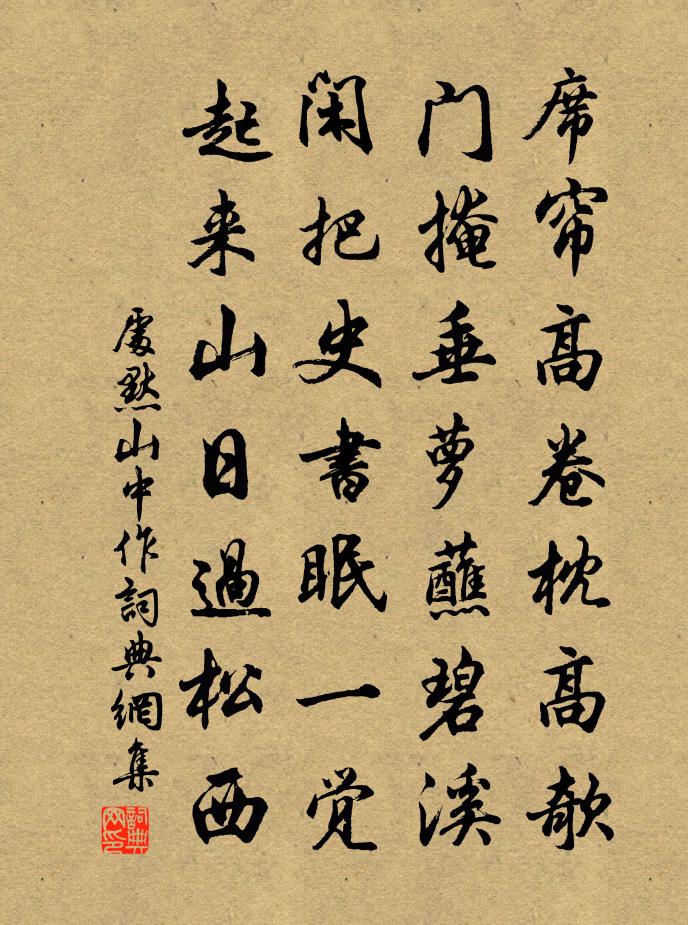 席帘高卷枕高欹
门掩垂萝蘸碧溪
闲把史书眠一觉
起来山日過松西
處默山中作詞典網集
詞典网印